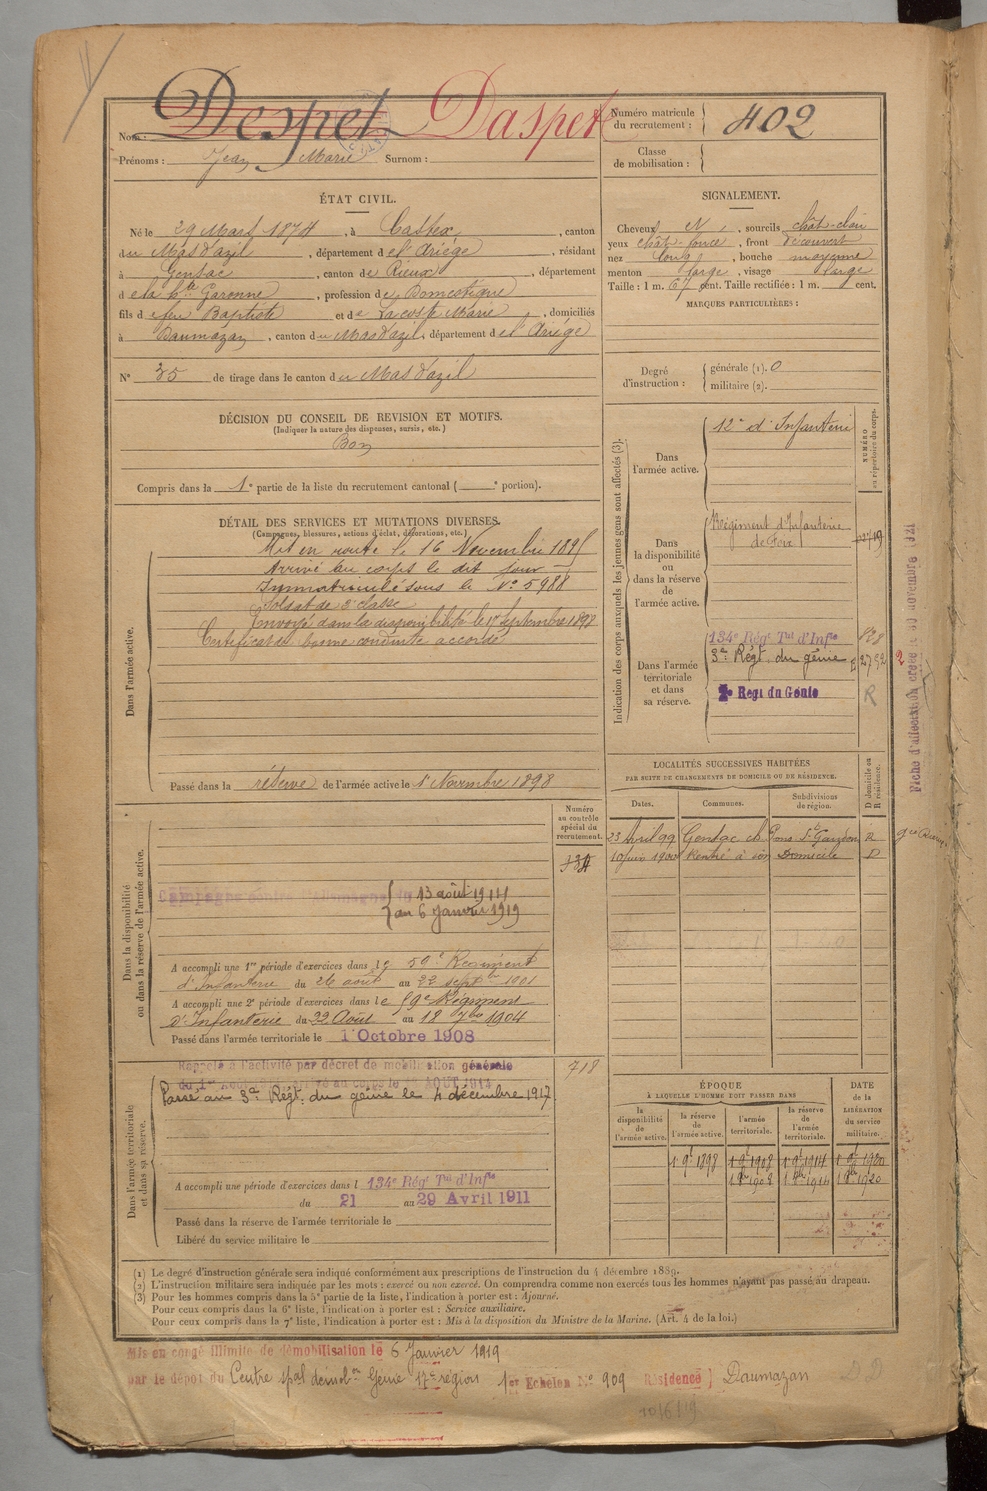 Nom : Despet Daspet
Prénoms : Jean Marie Surnom :
Numéro matricule du recrutement : 402
Classe de mobilisation :
ÉTAT CIVIL.
Né le 29 Mars 1874, à Castex, canton
du Mas d'azil, département de l'Ariège, résidant
à Gensac, canton de Rieux, département
de la hte Garonne, profession de Domestique
fils de feu Baptiste et de Lacoste Marie, domiciliés
à Daumazan, canton du Mas d'azil, département de l'Ariège
N° 35 de tirage dans le canton du Mas d'azil
SIGNALEMENT.
Cheveux N, sourcils chât-clair
yeux chât-foncé, front découvert
nez long, bouche moyenne
menton large, visage large
Taille : 1 m. 67 cent. Taille rectifiée : 1 m. cent.
MARQUES PARTICULIÈRES :
Degré d'instruction : générale (1). 0
militaire (2).
DÉCISION DU CONSEIL DE REVISION ET MOTIFS.
(Indiquer la nature des dispenses, sursis, etc.)
Bon
Compris dans la 1e partie de la liste du recrutement cantonal ( e portion).
DÉTAIL DES SERVICES ET MUTATIONS DIVERSES.
(Campagnes, blessures, actions d'éclat, décorations, etc.)
Dans l'armée active.
Mis en route le 16 Novembre 1895
Arrivé au corps le dit jour
Immatriculé sous le N° 5988
Soldat de 2e classe
Envoyé dans la disponibilité le 18 septembre 1898
Certificat de bonne conduite accordé
Passé dans la réserve de l'armée active le 1r Novembre 1898
Indication des corps auxquels les jeunes gens sont affectés (3).
NUMÉRO au répertoire du corps.
Dans l'armée active.
12e d'Infanterie
Dans la disponibilité ou dans la réserve de l'armée active.
Régiment d'Infanterie
de Foix
Dans l'armée territoriale et dans sa réserve.
134e Régt Tal d'Infie 828
3e Régt du génie
2e Regt du Génie R
Fiche d'affectation créée le 30 novembre 1921
LOCALITÉS SUCCESSIVES HABITÉES
PAR SUITE DE CHANGEMENTS DE DOMICILE OU DE RÉSIDENCE.
Dates. Communes. Subdivisions de région. D domicile ou R résidence.
23 Avril 99 Gensac St Gaudens R
10 juin 1900 Rentré à son Domicile D
Numéro au contrôle spécial du recrutement.
Dans la disponibilité ou dans la réserve de l'armée active.
Campagne contre l'Allemagne du 13 août 1914
au 6 Janvier 1919
A accompli une 1re période d'exercices dans le 59e Régiment
d'Infanterie du 26 août au 22 sept bre 1901
A accompli une 2e période d'exercices dans le 59e Régiment
d'Infanterie du 22 Août au 18 7bre 1904
Passé dans l'armée territoriale le 1 Octobre 1908
Dans l'armée territoriale et dans sa réserve.
718
Rappelé à l'activité par décret de mobilisation générale
Passé au 3e Régt. du génie le 4 décembre 1917
A accompli une période d'exercices dans l 134e Régt Tal d'Infie
du 21 au 29 Avril 1911
Passé dans la réserve de l'armée territoriale le
Libéré du service militaire le
ÉPOQUE
À LAQUELLE L'HOMME DOIT PASSER DANS
la disponibilité de l'armée active.
la réserve de l'armée active.
l'armée territoriale.
la réserve de l'armée territoriale.
DATE de la LIBÉRATION du service militaire.
1 9bre 1898 1 9bre 1908 1 9bre 1914 1 9bre 1920
1 8bre 1908 1 8bre 1914 1 8bre 1920
(1) Le degré d'instruction générale sera indiqué conformément aux prescriptions de l'instruction du 4 décembre 1889.
(2) L'instruction militaire sera indiquée par les mots : exercé ou non exercé. On comprendra comme non exercés tous les hommes n'ayant pas passé au drapeau.
(3) Pour les hommes compris dans la 5e partie de la liste, l'indication à porter est : Ajourné.
Pour ceux compris dans la 6e liste, l'indication à porter est : Service auxiliaire.
Pour ceux compris dans la 7e liste, l'indication à porter est : Mis à la disposition du Ministre de la Marine. (Art. 4 de la loi.)
Mis en congé illimité de démobilisation le 6 Janvier 1919
par le dépôt du Centre spal démobon Génie 17e région 1er Echelon N° 909 Résidence } Daumazan